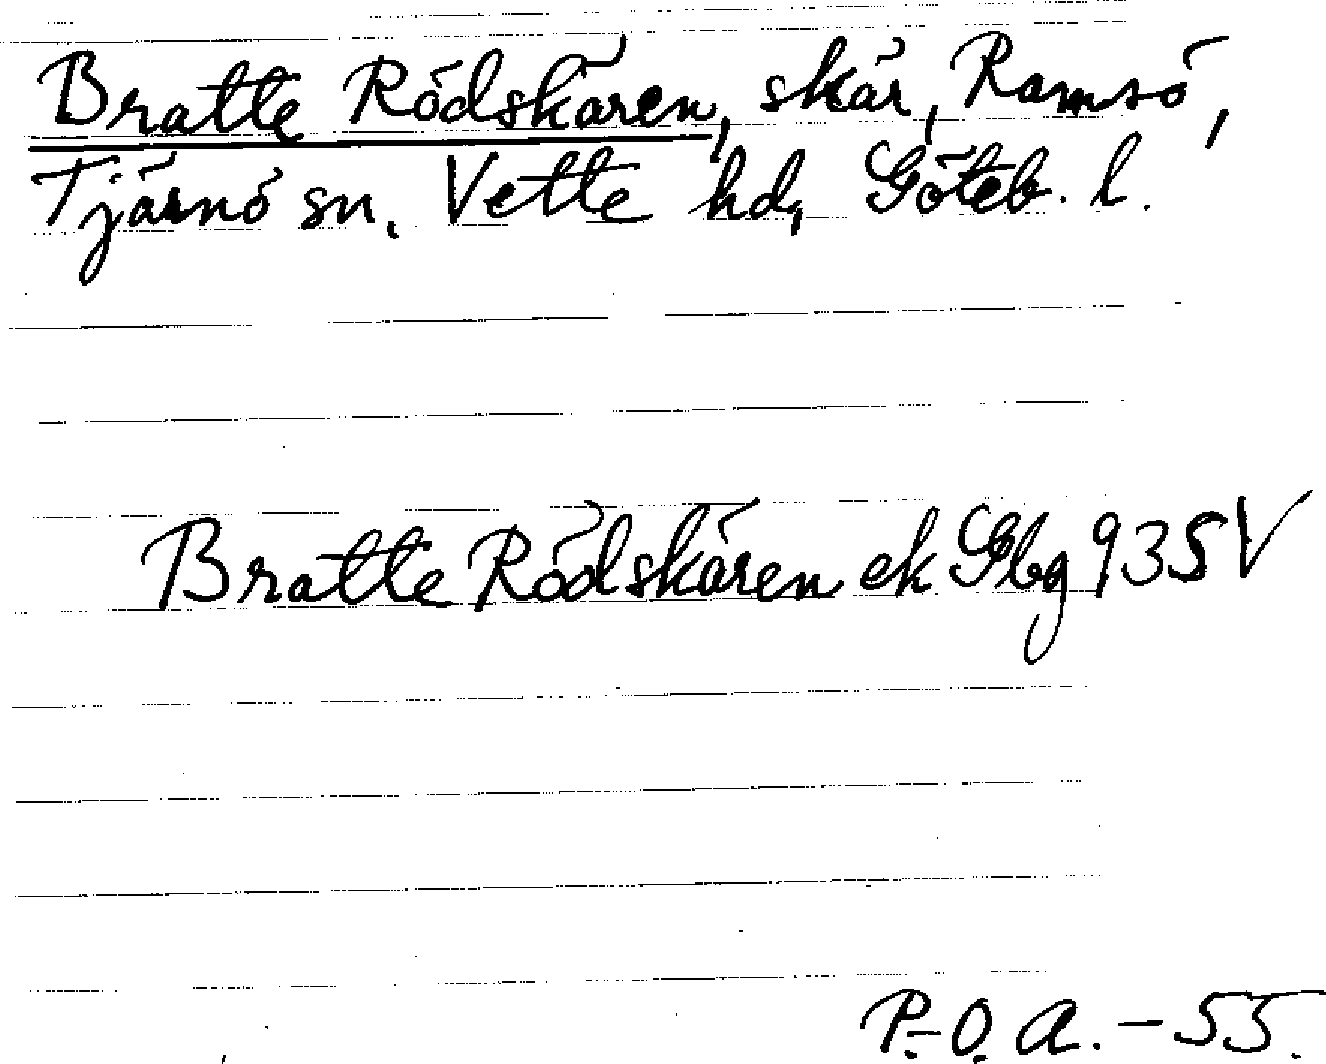 Bratte Rödskären, skär, Ramsö,
Tjärnö sn, Vette hd, Göteb. l.
Bratte Rödskären ek Gbg 93 SV
P.-O. A. - 55.